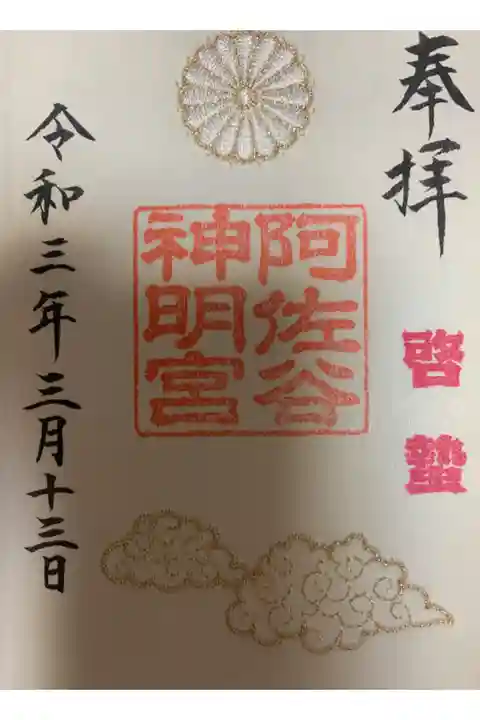 奉拝
啓蟄
阿佐谷
神明宮
令和三年三月十三日